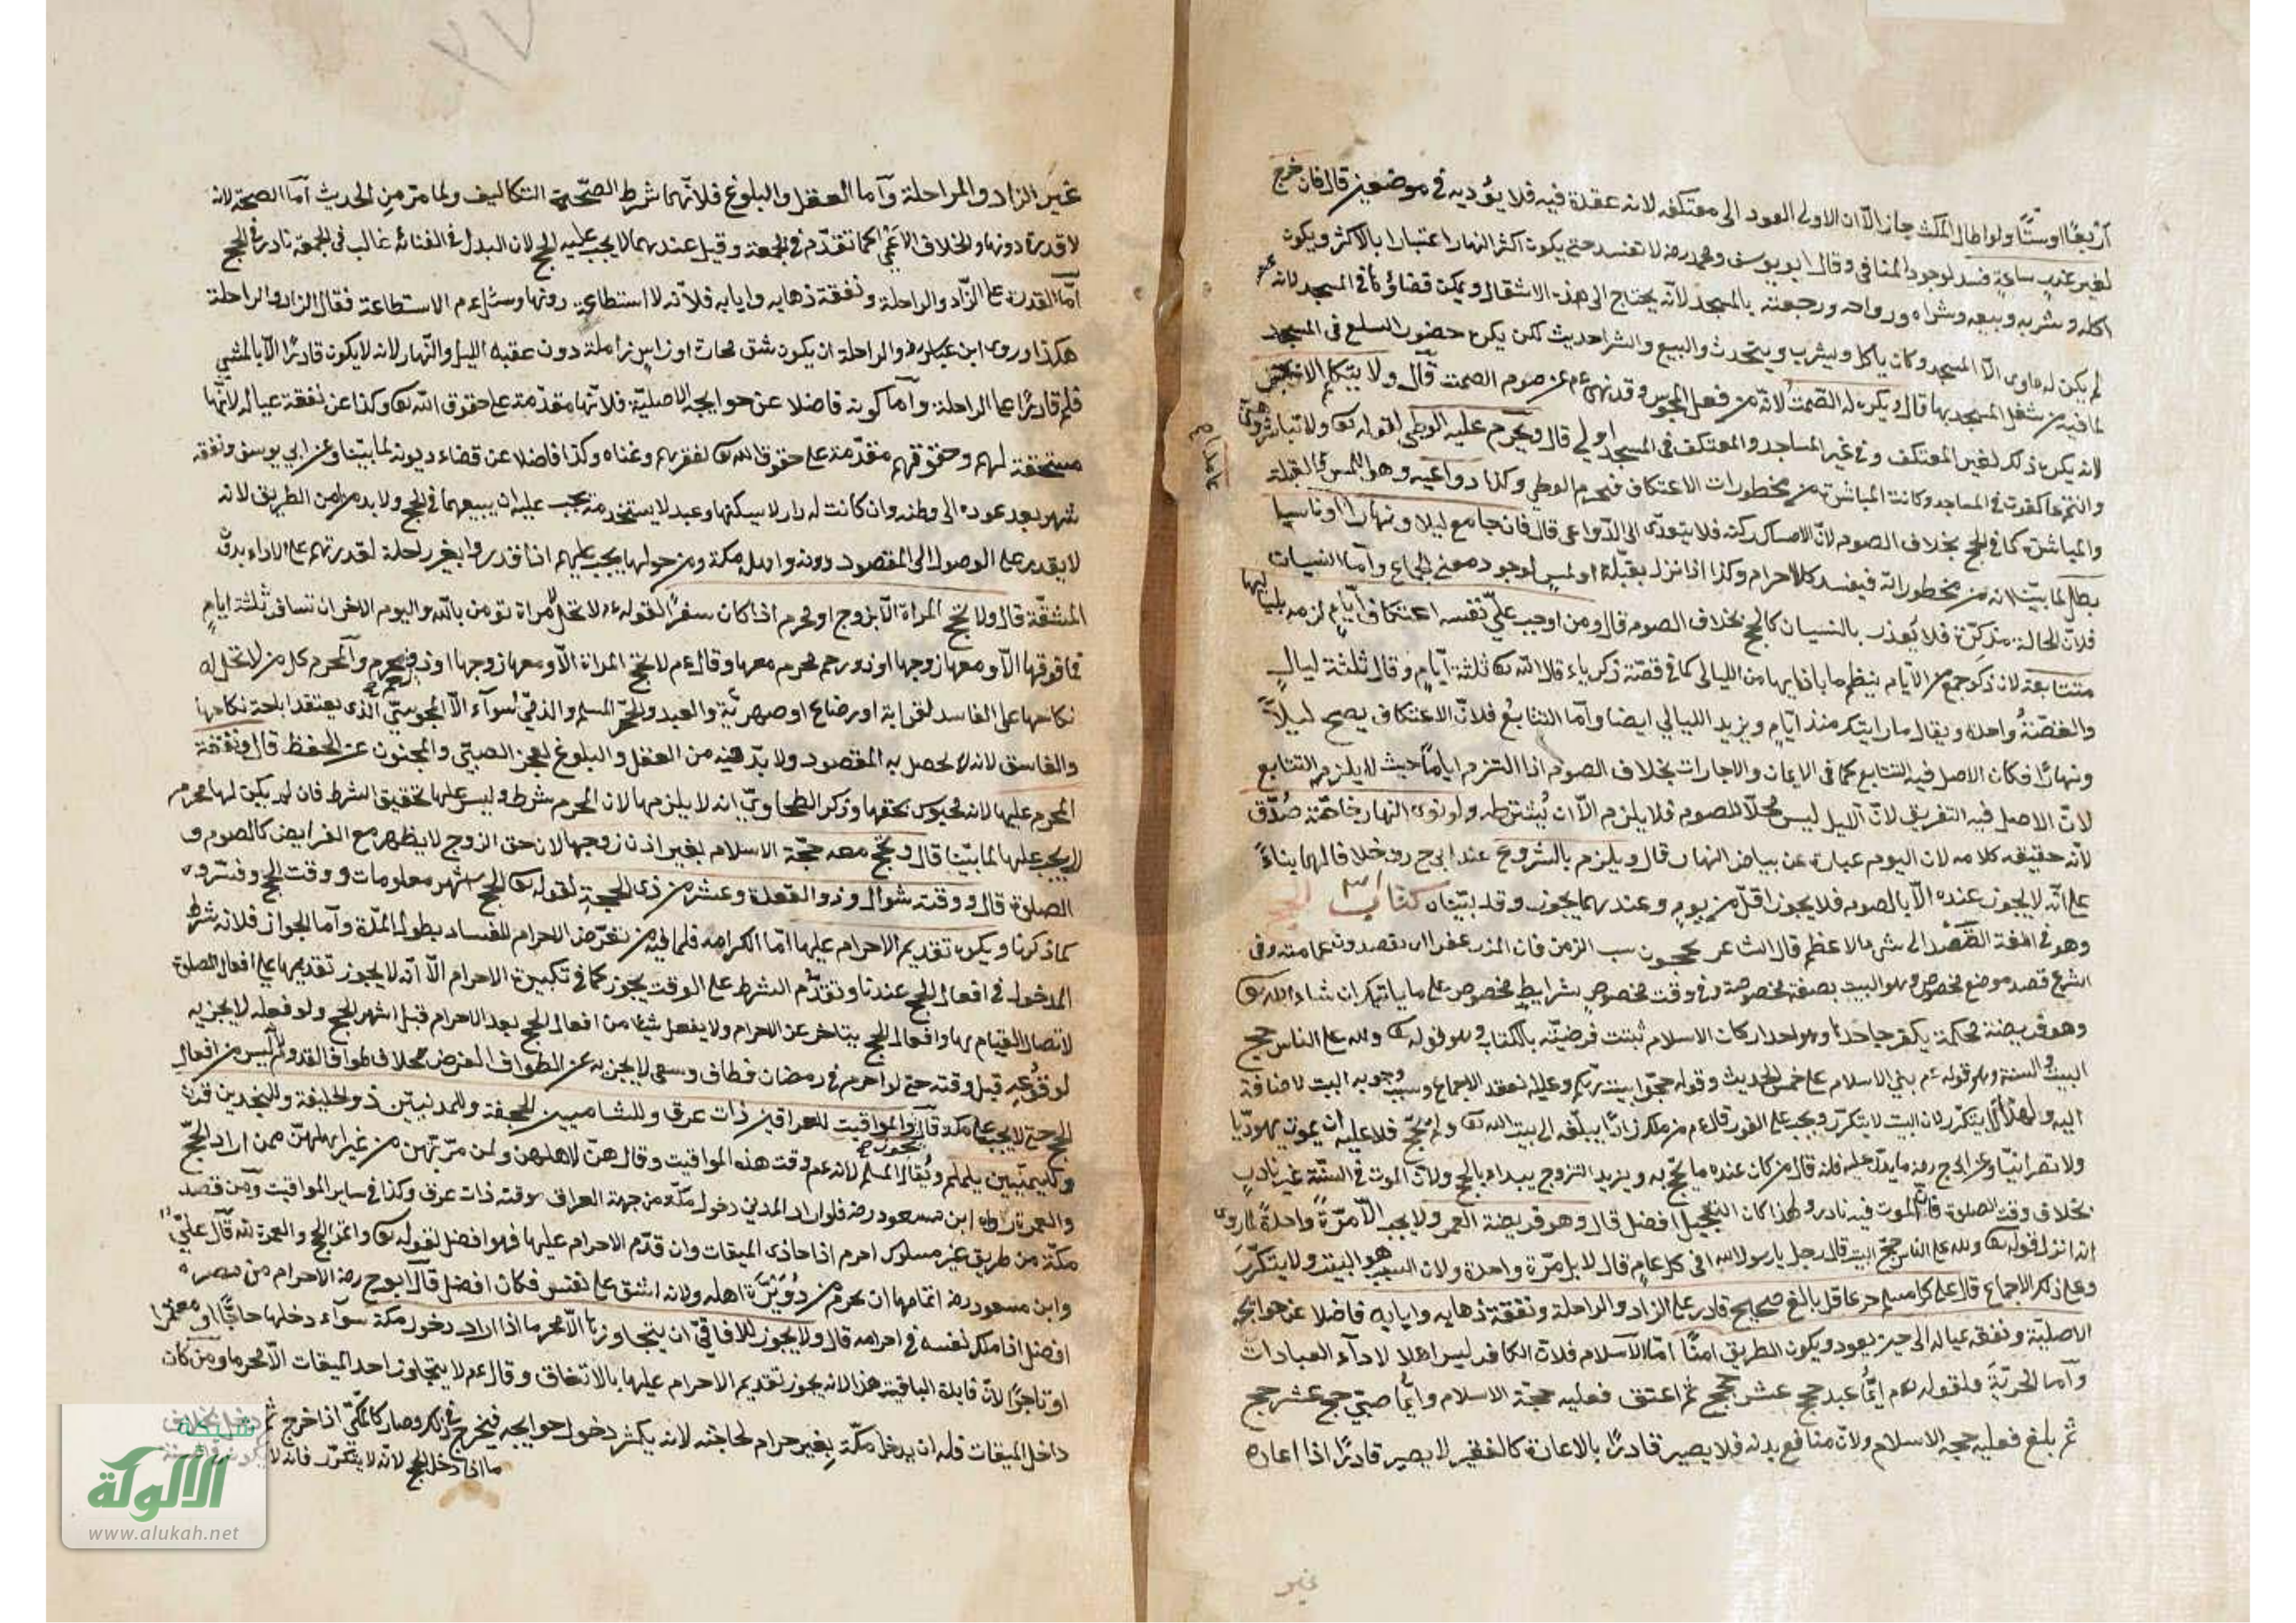 اربعا اوستا ولو اطال المكث جاز الا ان الاولى العود الى معتكفه لانه عقدة فيه فلا يؤديه في موضعين قال فان خرج
لغير عذر ساعة فسد لوجود المنافي وقال ابو يوسف ومحمد رضه لا تفسد حتى يكون اكثر النهار اعتبارا بالاكثر ويكون
اكله وشربه وبيعه وشراه وزواجه ورجعته بالمسجد لانه يحتاج الى هذه الاشغال ويمكن قضاؤها في المسجد لانه عم
لم يكن له ماوى الا المسجد وكان ياكل ويشرب ويتحدث والبيع والشرا حديث لكن يكره حضور السلع في المسجد
لما فيه من شغل المسجد بها قال ويكره له الصمت لانه من فعل المجوس وقد نهى عم عن صوم الصمت قال ولا يتكلم الا بخير
لانه يكره ذلك لغير المعتكف وفي غير المساجد والمعتكف في المسجد اولى قال ويحرم عليه الوطي لقوله تع ولا تباشروهن
وانتم عاكفون في المساجد وكانت المباشرة من محظورات الاعتكاف فيحرم الوطي وكذا دواعيه وهو اللمس والقبلة
والمباشرة كما في الحج بخلاف الصوم لان الامساك ركنه فلا يتعدى الى الدواعي قال فان جامع ليلا ونهارا او ناسيا
بطل لما بينا انه من محظوراته فيفسد كالاحرام وكذا اذا انزل بقبلة او لمس لوجود معنى الجماع واما النسيان
فلان الحالة مذكرة فلا يعذر بالنسيان كالحج بخلاف الصوم قال ومن اوجب على نفسه اعتكاف ايام لزمه بلياليها
متتابعة لان ذكر جمع من الايام ينظم ما بازايها من الليالي كما في قصة زكرياء قال الله تع ثلثة ايام وقال ثلثة ليال
والقصة واحدة ويقال ما رايتك منذ ايام ويريد الليالي ايضا واما التتابع فلان الاعتكاف يصح ليلا
ونهارا فكان الاصل فيه التتابع كما في الايمان والاجارات بخلاف الصوم اذا التزم اياما حيث لا يلزم التتابع
لان الاصل فيه التفريق لان الليل ليس محلا للصوم فلا يلزم الا ان يشترطه ولو نوى النهار خاصة صدق
لانه حقيقة كلامه لان اليوم عبارة عن بياض النهار قال ويلزم بالشروع عند ابي ح رضه خلافا لهما بناء
على انه لا يجوز عنده الا بالصوم فلا يجوز اقل من يوم وعندهما يجوز وقد بيناه كتاب الحج
وهو في اللغة القصد الى شيء الاعظم قال الشاعر يحجون سب الزبرقان المزعفرا اي يقصدون عمامته وفي
الشرع قصد موضع مخصوص وهو البيت بصفة مخصوصة وفي وقت مخصوص بشرايط مخصوصة على ما ياتيك ان شاء الله تع
وهو فريضة محكمة يكفر جاحدها وهو احد اركان الاسلام ثبتت فرضيته بالكتاب وهو قوله تع ولله على الناس حج
البيت والسنة وهو قوله عم بني الاسلام على خمس الحديث وقوله حجوا بيت ربكم وعليه انعقد الاجماع وسبب وجوبه البيت لاضافة
اليه ولهذا لا يتكرر لان البيت لا يتكرر ويجب على الفور قال عم من ملك زادا يبلغه الى بيت الله تع ولم يحج فلا عليه ان يموت يهوديا
ولا نصرانيا وعن ابي ح رضه ما يدل عليه فانه قال من كان عنده ما يحج به ويريد التزوج يبداء بالحج ولان الموت في السنة غير نادر
بخلاف وقت الصلوة فان الموت فيه نادر ولهذا كان التعجيل افضل قال وهو فريضة العمر ولا يجب الا مرة واحدة لما روى
انه نزل قوله تع ولله على الناس حج البيت قال رجل يا رسول الله افي كل عام قال لا بل مرة واحدة ولان السبب هو البيت ولا يتكرر
وعلى ذلك الاجماع قال على كل مسلم حر عاقل بالغ صحيح قادر على الزاد والراحلة ونفقة ذهابه وايابه فاضلا عن حوايجه
الاصلية ونفقة عياله الى حين يعود ويكون الطريق امنا اما الاسلام فلان الكافر ليس اهلا لاداء العبادات
واما الحرية فلقوله عم ايما عبد حج عشر حجج ثم اعتق فعليه حجة الاسلام وايما صبي حج عشر حجج
ثم بلغ فعليه حجة الاسلام ولان منافع بدنه فلا يصير قادرا بالاعارة كالفقير لا يصير قادرا اذا اعاره
غير
غير الزاد والراحلة واما العقل والبلوغ فلانهما شرط لصحة التكاليف ولما مر من الحديث اما الصحة لانه
لا قدرة دونها والخلاف الاعمى كما تقدم في الجمعة وقيل عندهما لا يجب عليه الحج لان البدل في الفناء غالب في الجمعة نادر في الحج
اما القدرة على الزاد والراحلة ونفقة ذهابه وايابه فلانه لا استطاعة دونها وسئل عم الاستطاعة فقال الزاد والراحلة
هكذا روى ابن عباس رضه والراحلة ان يكون شق محارة او راس زاملة دون عقبة الليل والنهار لانه لا يكون قادرا الا بالمشي
فلم قادرا على الراحلة واما كونه فاضلا عن حوايجه الاصلية فلانها مقدمة على حقوق الله تع وكذا عن نفقة عياله لانها
مستحقة لهم وحقوقهم مقدمة على حقوق الله تع لفقرهم وغناه وكذا فاضلا عن قضاء ديونه لما بينا وعن ابي يوسف ونفقة
شهر بعد عوده الى وطنه وان كانت له دار لا يسكنها وعبد لا يستخدمه يجب عليه ان يبيعهما في الحج ولا بد من امن الطريق لانه
لا يقدر على الوصول الى المقصود دونه واهل مكة ومن حولها يجب عليهم اذا قدروا بغير راحلة لقدرتهم على الاداء بدون
المشقة قال ولا تحج المراة الا بزوج او محرم اذا كان سفرا لقوله عم لا تحل لامراة تؤمن بالله واليوم الاخر ان تسافر ثلثة ايام
فما فوقها الا ومعها زوجها او ذو رحم محرم معها وقال عم لا تحج المراة الا ومعها زوجها او ذو محرم والمحرم كل من لا تحل له
نكاحها على الفاسد لقرابة او رضاع او صهرية والعبد والحر المسلم والذمي سواء الا المجوسي الذي يعتقد اباحة نكاحها
والفاسق لانه لا يحصل به المقصود ولا بد فيه من العقل والبلوغ لعجز الصبي والمجنون عن الحفظ قال ونفقة
المحرم عليها لانه محبوس بحقها وذكر الطحاوي انه لا يلزمها لان المحرم شرط وليس عليها تحقيق الشرط فان لم يكن لها محرم
لا يجب عليها لما بينا قال وتحج معه حجة الاسلام بغير اذن زوجها لان حق الزوج لا يظهر مع الفرايض كالصوم و
الصلوة قال ووقته شوال وذو القعدة وعشر من ذي الحجة لقوله تع الحج اشهر معلومات ووقت الحج وفسروه
كما ذكرنا ويكره تقديم الاحرام عليها اما الكراهة فلما فيه من تعرض الاحرام للفساد بطول المدة واما الجواز فلانه شرط
الدخول في افعال الحج عندنا وتقدم الشرط على الوقت يجوز كما في تكبيرة الاحرام الا انه لا يجوز تقديمها على افعال الصلوة
لاتصال القيام بها وافعال الحج يتاخر عن الاحرام ولا يفعل شيئا من افعال الحج بعد الاحرام قبل اشهر الحج ولو فعله لا يجزيه
لوقوعه قبل وقته حتى لو احرم في رمضان فطاف وسعى لا يجزيه عن الطواف الفرض بخلاف طواف القدوم لانه ليس من افعال
الحج حتى لا يجب على مكة قال والمواقيت للعراقين ذات عرق وللشاميين الجحفة وللمدنيين ذو الحليفة وللنجديين قرن
ولليمنيين يلملم ويقال المسلم لانه عم وقت هذه المواقيت وقال هن لاهلهن ولمن مر بهن من غير اهلهن ممن اراد الحج
والعمرة رواه ابن مسعود رضه فلو اراد المدني دخول مكة من جهة العراق وقته ذات عرق وكذا في ساير المواقيت ومن قصد
مكة من طريق غير مسلوك احرم اذا حاذى الميقات وان قدم الاحرام عليها فهو افضل لقوله تع واتموا الحج والعمرة لله قال علي
وابن مسعود رضه اتمامها ان يحرم من دويرة اهله ولانه اشق على نفسه فكان افضل قال ابو ح رضه الاحرام من مصره
افضل اذا ملك نفسه في احرامه قال ولا يجوز للافاقي ان يتجاوزها الا محرما اذا اراد دخول مكة سواء دخلها حاجا او معتمرا
او تاجرا لان فايدة الباقية هذا لانه يجوز تقديم الاحرام عليها بالاتفاق وقال عم لا يتجاوز احد الميقات الا محرما ومن كان
داخل الميقات فله ان يدخل مكة بغير احرام لحاجته لانه يكثر دخول حوايجه فيخرج في ذلك وصار كالمكي اذا خرج ثم دخل بخلاف
ما اذا دخل للحج لانه لا يتكرر فانه لا
شبكة
الالوكة
www.alukah.net